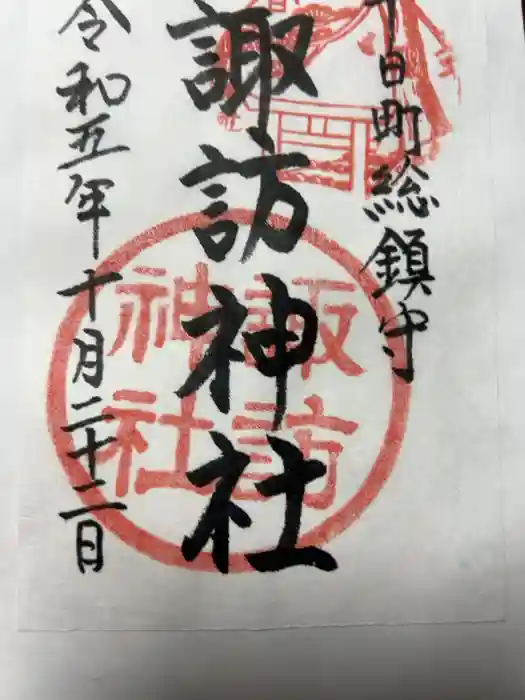 十日町総鎮守
諏訪神社
令和五年十月二十二日
諏訪
神社